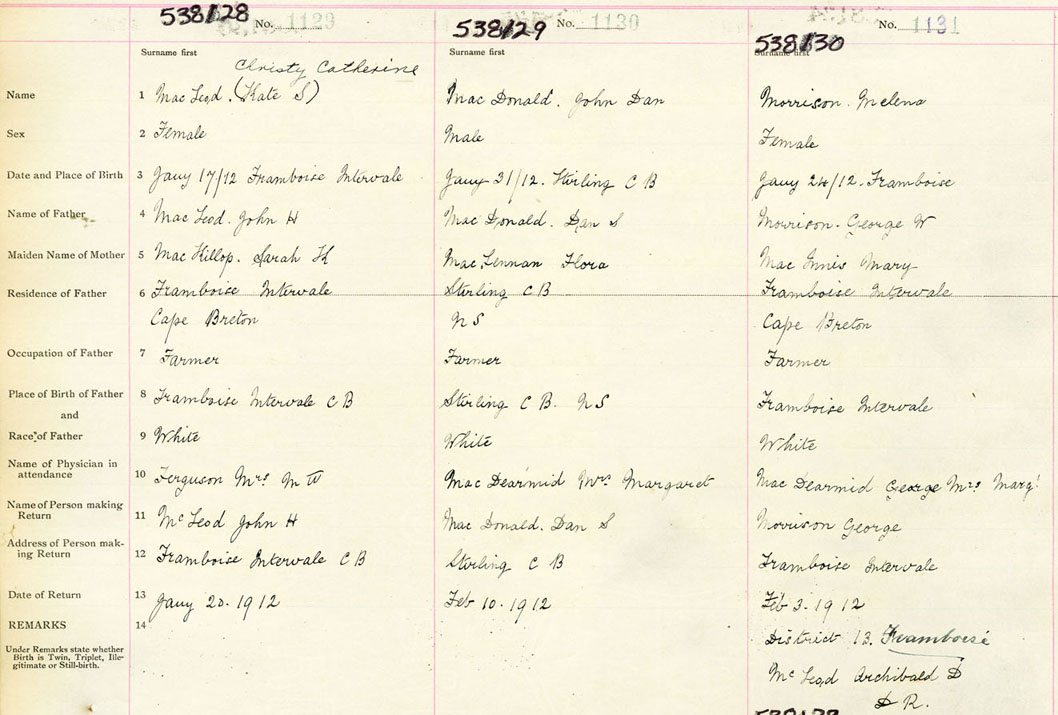 538128 No. 1129 538129 No. 1130 538130 No. 1131
Surname first Surname first Surname first
Christy Catherine
Name 1 Mac Leod. (Kate S) Mac Donald. John Dan Morrison. Melena
Sex 2 Female Male Female
Date and Place of Birth 3 Jany 17/12 Framboise Intervale Jany 31/12. Stirling C B Jany 24/12. Framboise
Name of Father 4 Mac Leod. John H Mac Donald. Dan S Morrison. George W
Maiden Name of Mother 5 Mac Killop. Sarah K Mac Lennan Flora Mac Innis Mary
Residence of Father 6 Framboise Intervale Stirling C B Framboise Intervale
Cape Breton N S Cape Breton
Occupation of Father 7 Farmer Farmer Farmer
Place of Birth of Father 8 Framboise Intervale C B Stirling C B. N S Framboise Intervale
and
Race of Father 9 White White White
Name of Physician in
attendance 10 Ferguson Mrs M W Mac Dearmid Mrs Margaret Mac Dearmid George Mrs Margt
Name of Person making
Return 11 McLeod John H Mac Donald. Dan S Morrison George
Address of Person mak-
ing Return 12 Framboise Intervale C B Stirling C B Framboise Intervale
Date of Return 13 Jany 20. 1912 Feb 10. 1912 Feb 3. 1912
REMARKS 14 District 13. Framboise
Under Remarks state whether
Birth is Twin, Triplet, Ille-
gitimate or Still-birth.
McLeod Archibald D
D R.